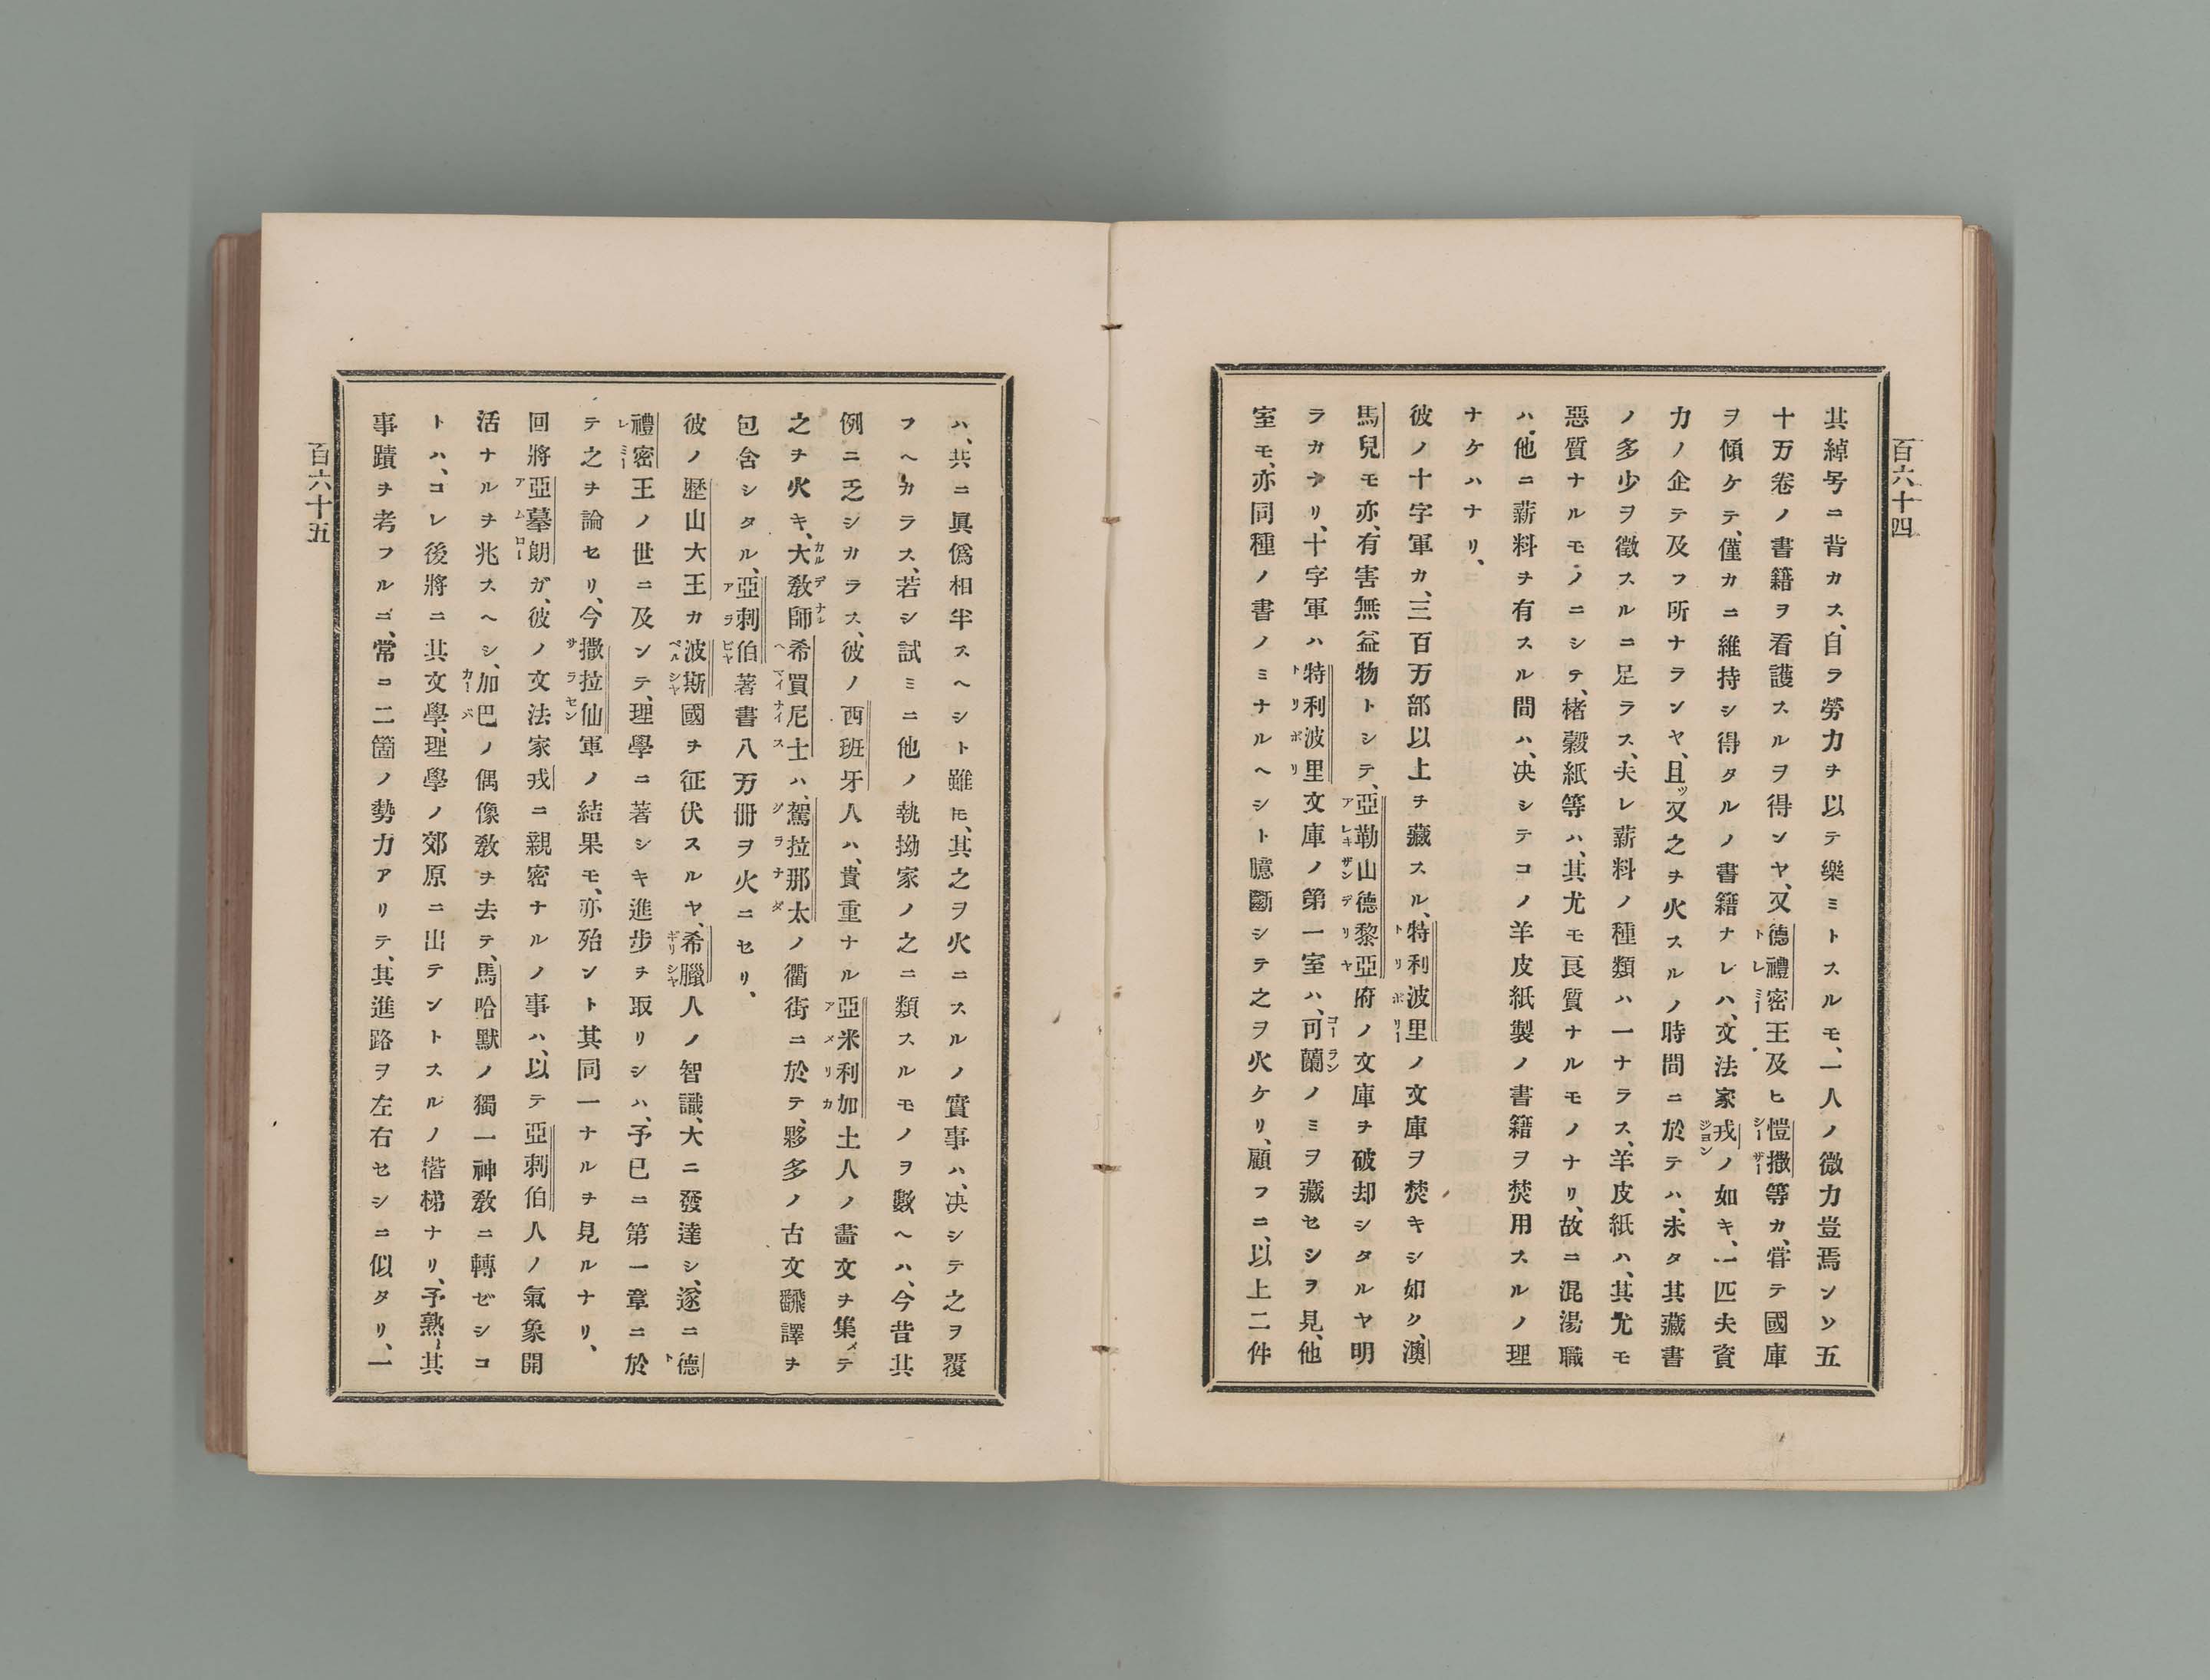 百六十四
其綽号ニ背カス、自ラ勞力ヲ以テ樂ミトスルモ、一人ノ微力豈焉ンソ五
十万卷ノ書籍ヲ看護スルヲ得ンヤ、又德禮密王及ヒ愷撒等カ、甞テ國庫
ヲ傾ケテ、僅カニ維持シ得タルノ書籍ナレハ、文法家戎ノ如キ、一匹夫資
力ノ企テ及フ所ナランヤ、且ッ又之ヲ火スルノ時間ニ於テハ、未タ其藏書
ノ多少ヲ徵スルニ足ラス、夫レ薪料ノ種類ハ一ナラス、羊皮紙ハ、其尤モ
惡質ナルモノニシテ、楮穀紙等ハ、其尤モ良質ナルモノナリ、故ニ混湯職
ハ、他ニ薪料ヲ有スル間ハ、决シテコノ羊皮紙製ノ書籍ヲ焚用スルノ理
ナケハナリ、
彼ノ十字軍カ、三百万部以上ヲ藏スル、特利波里ノ文庫ヲ焚キシ如ク、澳
馬兒モ亦、有害無益物トシテ、亞勒山德黎亞府ノ文庫ヲ破却シタルヤ明
ラカナリ、十字軍ハ特利波里文庫ノ第一室ハ、可蘭ノミヲ藏セシヲ見、他
室モ、亦同種ノ書ノミナルヘシト臆斷シテ之ヲ火ケリ、顧フニ、以上二件
ハ、共ニ眞僞相半スヘシト雖ㇳモ、其之ヲ火ニスルノ實事ハ、决シテ之ヲ覆
フヘカラス、若シ試ミニ他ノ執拗家ノ之ニ類スルモノヲ數ヘハ、今昔其
例ニ乏シカラス、彼ノ西班牙人ハ、貴重ナル亞米利加土人ノ畵文ヲ集メテ
之ヲ火キ、大敎師希買尼士ハ、駕拉那太ノ衢街ニ於テ、夥多ノ古文飜譯ヲ
包含シタル、亞刺伯著書八万册ヲ火ニセリ、
彼ノ歷山大王カ波斯國ヲ征伏スルヤ、希臘人ノ智識、大ニ發達シ、遂ニ德
禮密王ノ世ニ及ンテ、理學ニ著シキ進步ヲ取リシハ、予已ニ第一章ニ於
テ之ヲ論セリ、今撒拉仙軍ノ結果モ、亦殆ント其同一ナルヲ見ルナリ、
回將亞墓朗ガ、彼ノ文法家戎ニ親密ナルノ事ハ、以テ亞刺伯人ノ氣象開
活ナルヲ兆スヘシ、加巴ノ偶像敎ヲ去テ、馬哈默ノ獨一神敎ニ轉ゼシコ
トハ、コレ後將ニ其文學、理學ノ郊原ニ出テントスルノ楷梯ナリ、予熟〻其
事蹟ヲ考フルニ、常ニ二箇ノ勢力アリテ、其進路ヲ左右セシニ似タリ、一
百六十五